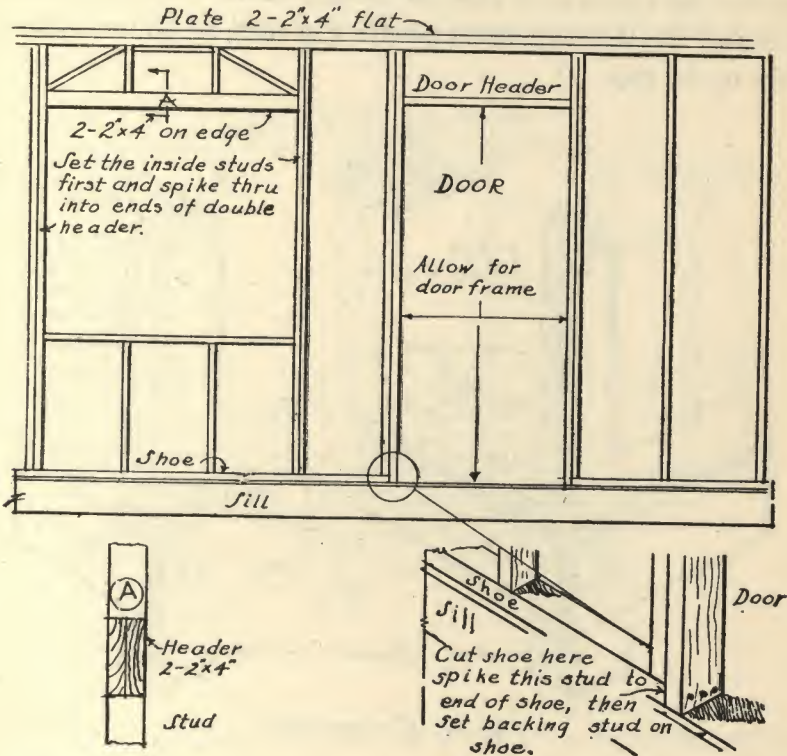 Plate 2-2"x4" flat
Door Header
A
2-2"x4" on edge
Set the inside studs
first and spike thru
into ends of double
header.
DOOR
Allow for
door frame
Shoe
Sill
A
Header
2-2"x4"
Stud
Shoe
Sill
Door
Cut shoe here
spike this stud to
end of shoe, then
set backing stud on
shoe.